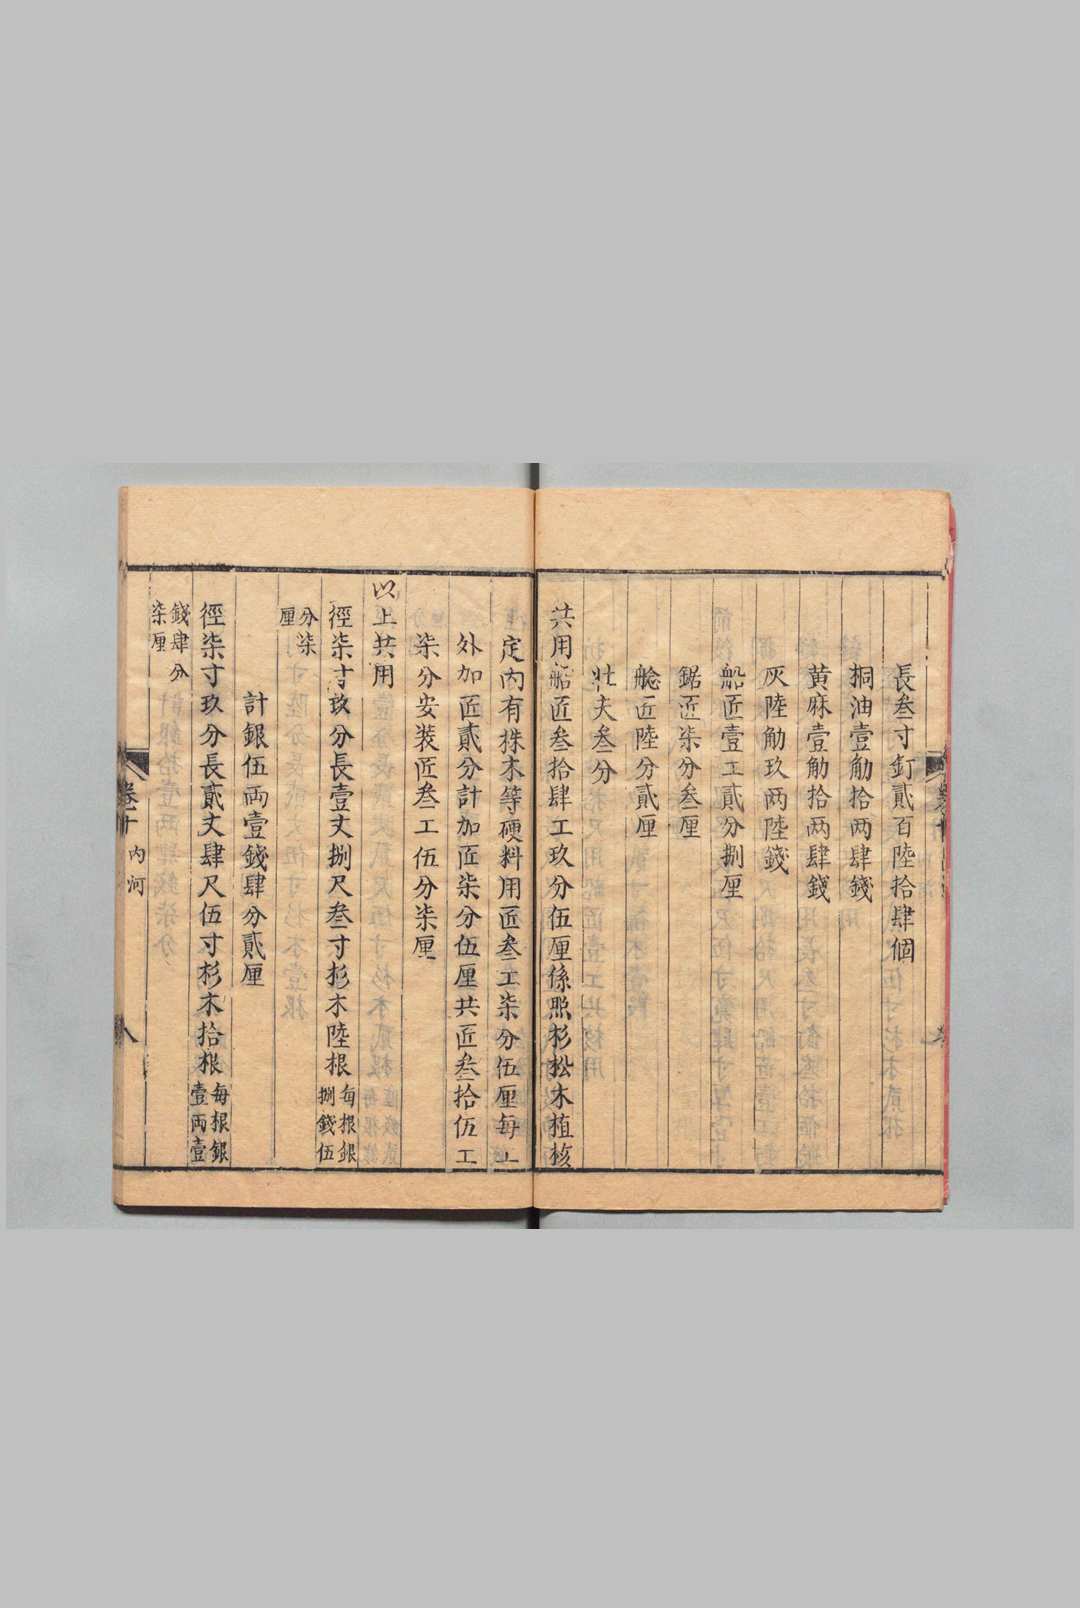 長叁寸釘貳百陸拾肆個
桐油壹觔拾两肆錢
黄麻壹觔拾两肆錢
灰陸觔玖两陸錢
船匠壹工貳分捌厘
鋸匠柒分叁厘
艌匠陸分貳厘
壮夫叁分
共用船匠叁拾肆工玖分伍厘係照杉松木植核
定内有株木等硬料用匠叁工柒分伍厘每工
外加匠貳分計加匠柒分伍厘共匠叁拾伍工
柒分安装匠叁工伍分柒厘
以上共用
徑柒寸玖分長壹丈捌尺叁寸杉木陸根每根銀捌錢伍
分柒厘
計銀伍两壹錢肆分貳厘
徑柒寸玖分長貳丈肆尺伍寸杉木拾根每根銀壹两壹
錢肆分柒厘
卷十 内河
八